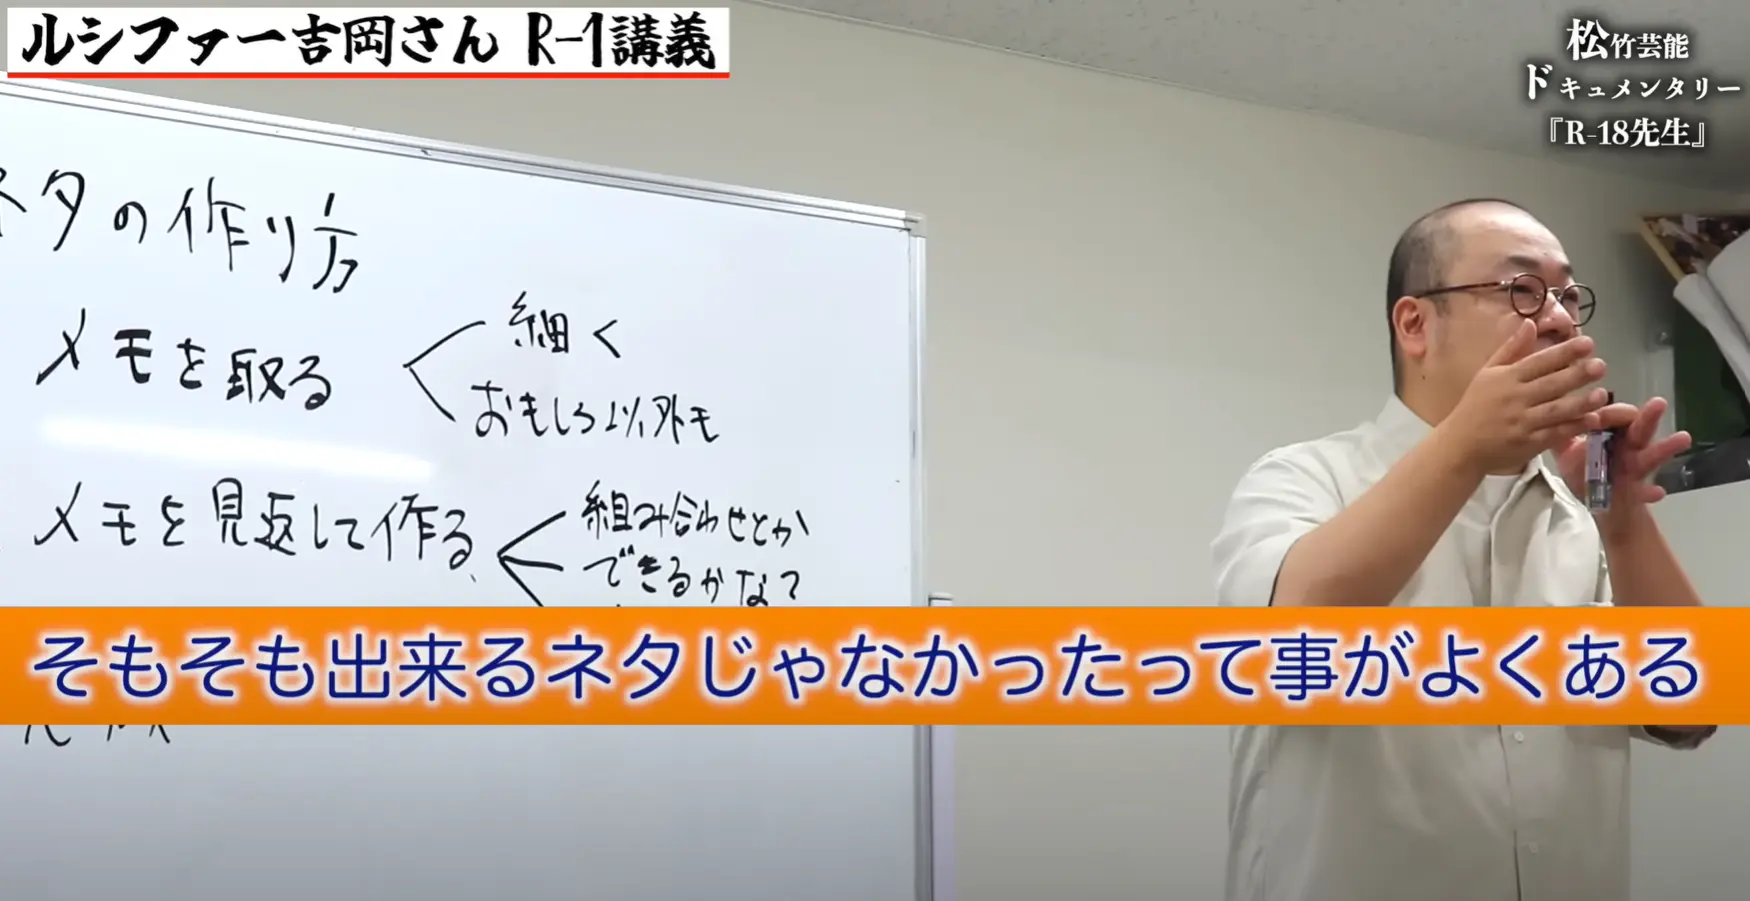 ルシファー吉岡さん R-1講義
松竹芸能
ドキュメンタリー
『R-18先生』
ネタの作り方
メモを取る
細く
おもしろ以外も
メモを見返して作る
組み合わせとか
できるかなて
そもそも出来るネタじゃなかったって事がよくある